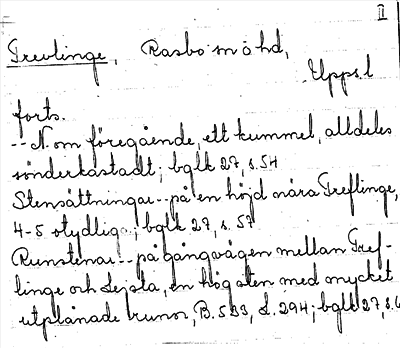 II
Trevlinge, Rasbo sn o hd,
Upps. l
forts.
-- N. om föregående, ett kummel, alldeles
sönderkastadt; bglk 27, s. 54
Stensättningar -- på en höjd nära Treflinge,
4-5 otydliga; bglk 27, s. 57
Runstenar -- på gångvägen mellan Tref-
linge och Lejsta, en högsten med mycket
utplånade runor, B. 533, L. 294; bglk 27, s. 6